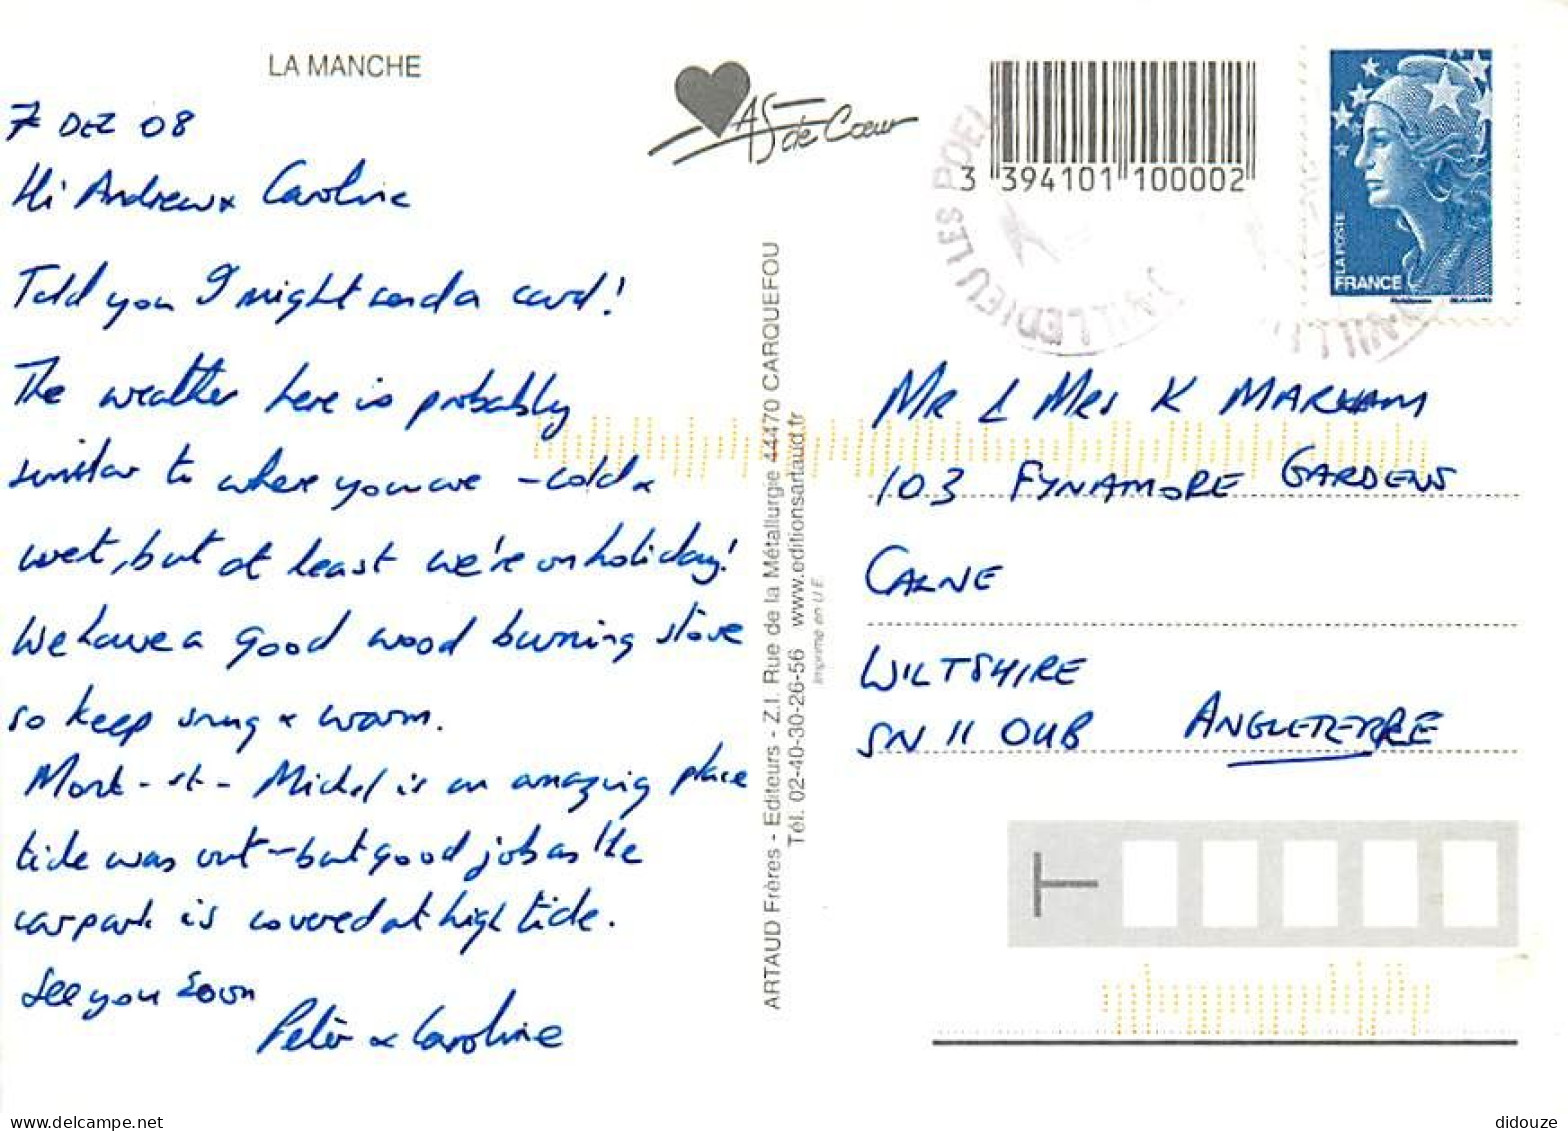 LA MANCHE
7 DEZ 08
Hi Andrew & Caroline
Told you I might send a card!
The weather here is probably
similar to where you are - cold &
wet, but at least we're on holiday!
We have a good wood burning stove
so keep snug & warm.
Mont-st-Michel is an amazing place
tide was out - but good job as the
car park is covered at high tide.
See you soon
Peter & Caroline
As de Cœur
3 394101 100002
LA POSTE
FRANCE
VILLEDIEU LES POEL
ARTAUD Frères - Editeurs - Z.I. Rue de la Métallurgie 44470 CARQUEFOU
Tél. 02-40-30-26-56 www.editionsartaud.fr
Imprimé en U.E.
MR & MRS K MARKHAM
103 FYNAMORE GARDENS
CALNE
WILTSHIRE
SN11 OUB ANGLETERRE
T
didouze